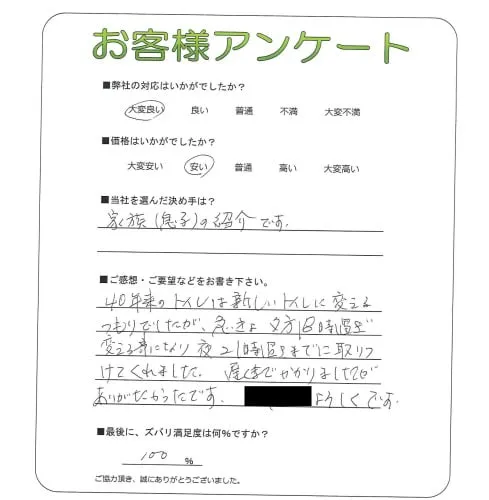 お客様アンケート
■弊社の対応はいかがでしたか?
大変良い 良い 普通 不満 大変不満
■価格はいかがでしたか?
大変安い 安い 普通 高い 大変高い
■当社を選んだ決め手は?
家族(息子)の紹介です。
■ご感想・ご要望などをお書き下さい。
40年来のトイレは新しいトイレに変える
つもりでしたが、急きょ夕方18時過ぎ
変える事になり夜21時過ぎまでに取りつ
けてくれました。 までかかりましたが
ありがたかったです。 よろしくです。
■最後に、ズバリ満足度は何%ですか?
100 %
ご協力頂き、誠にありがとうございました。